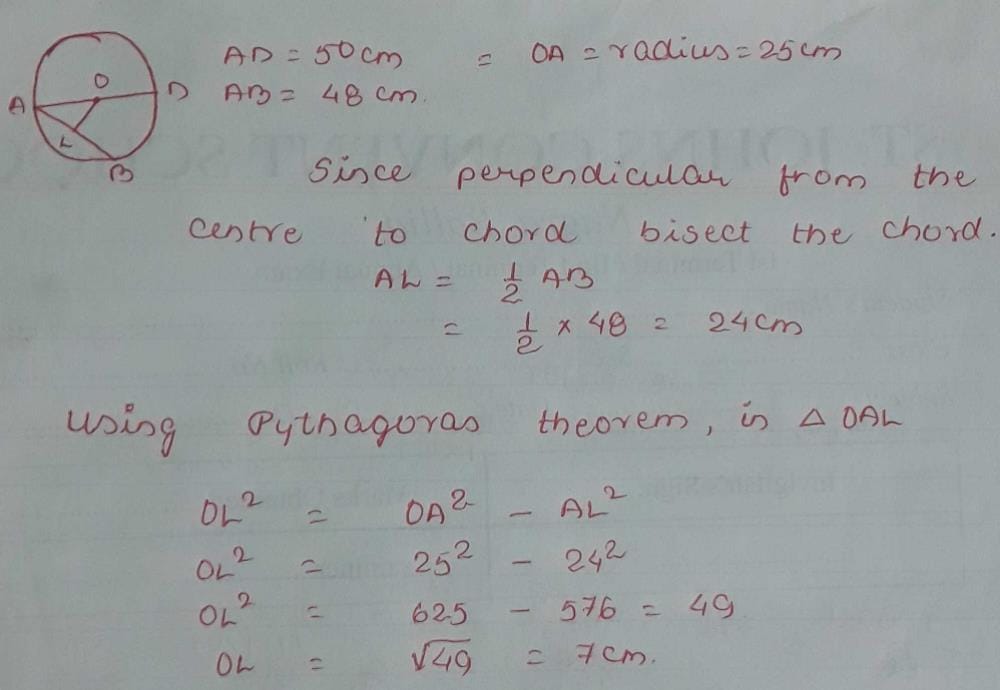 AD = 50cm = OA = radius = 25cm
AB = 48 cm.
O
A
D
L
B
Since perpendicular from the
centre to chord bisect the chord.
AL = 1/2 AB
= 1/2 × 48 = 24cm
Using Pythagoras theorem, in △ OAL
OL² = OA² - AL²
OL² = 25² - 24²
OL² = 625 - 576 = 49
OL = √49 = 7cm.